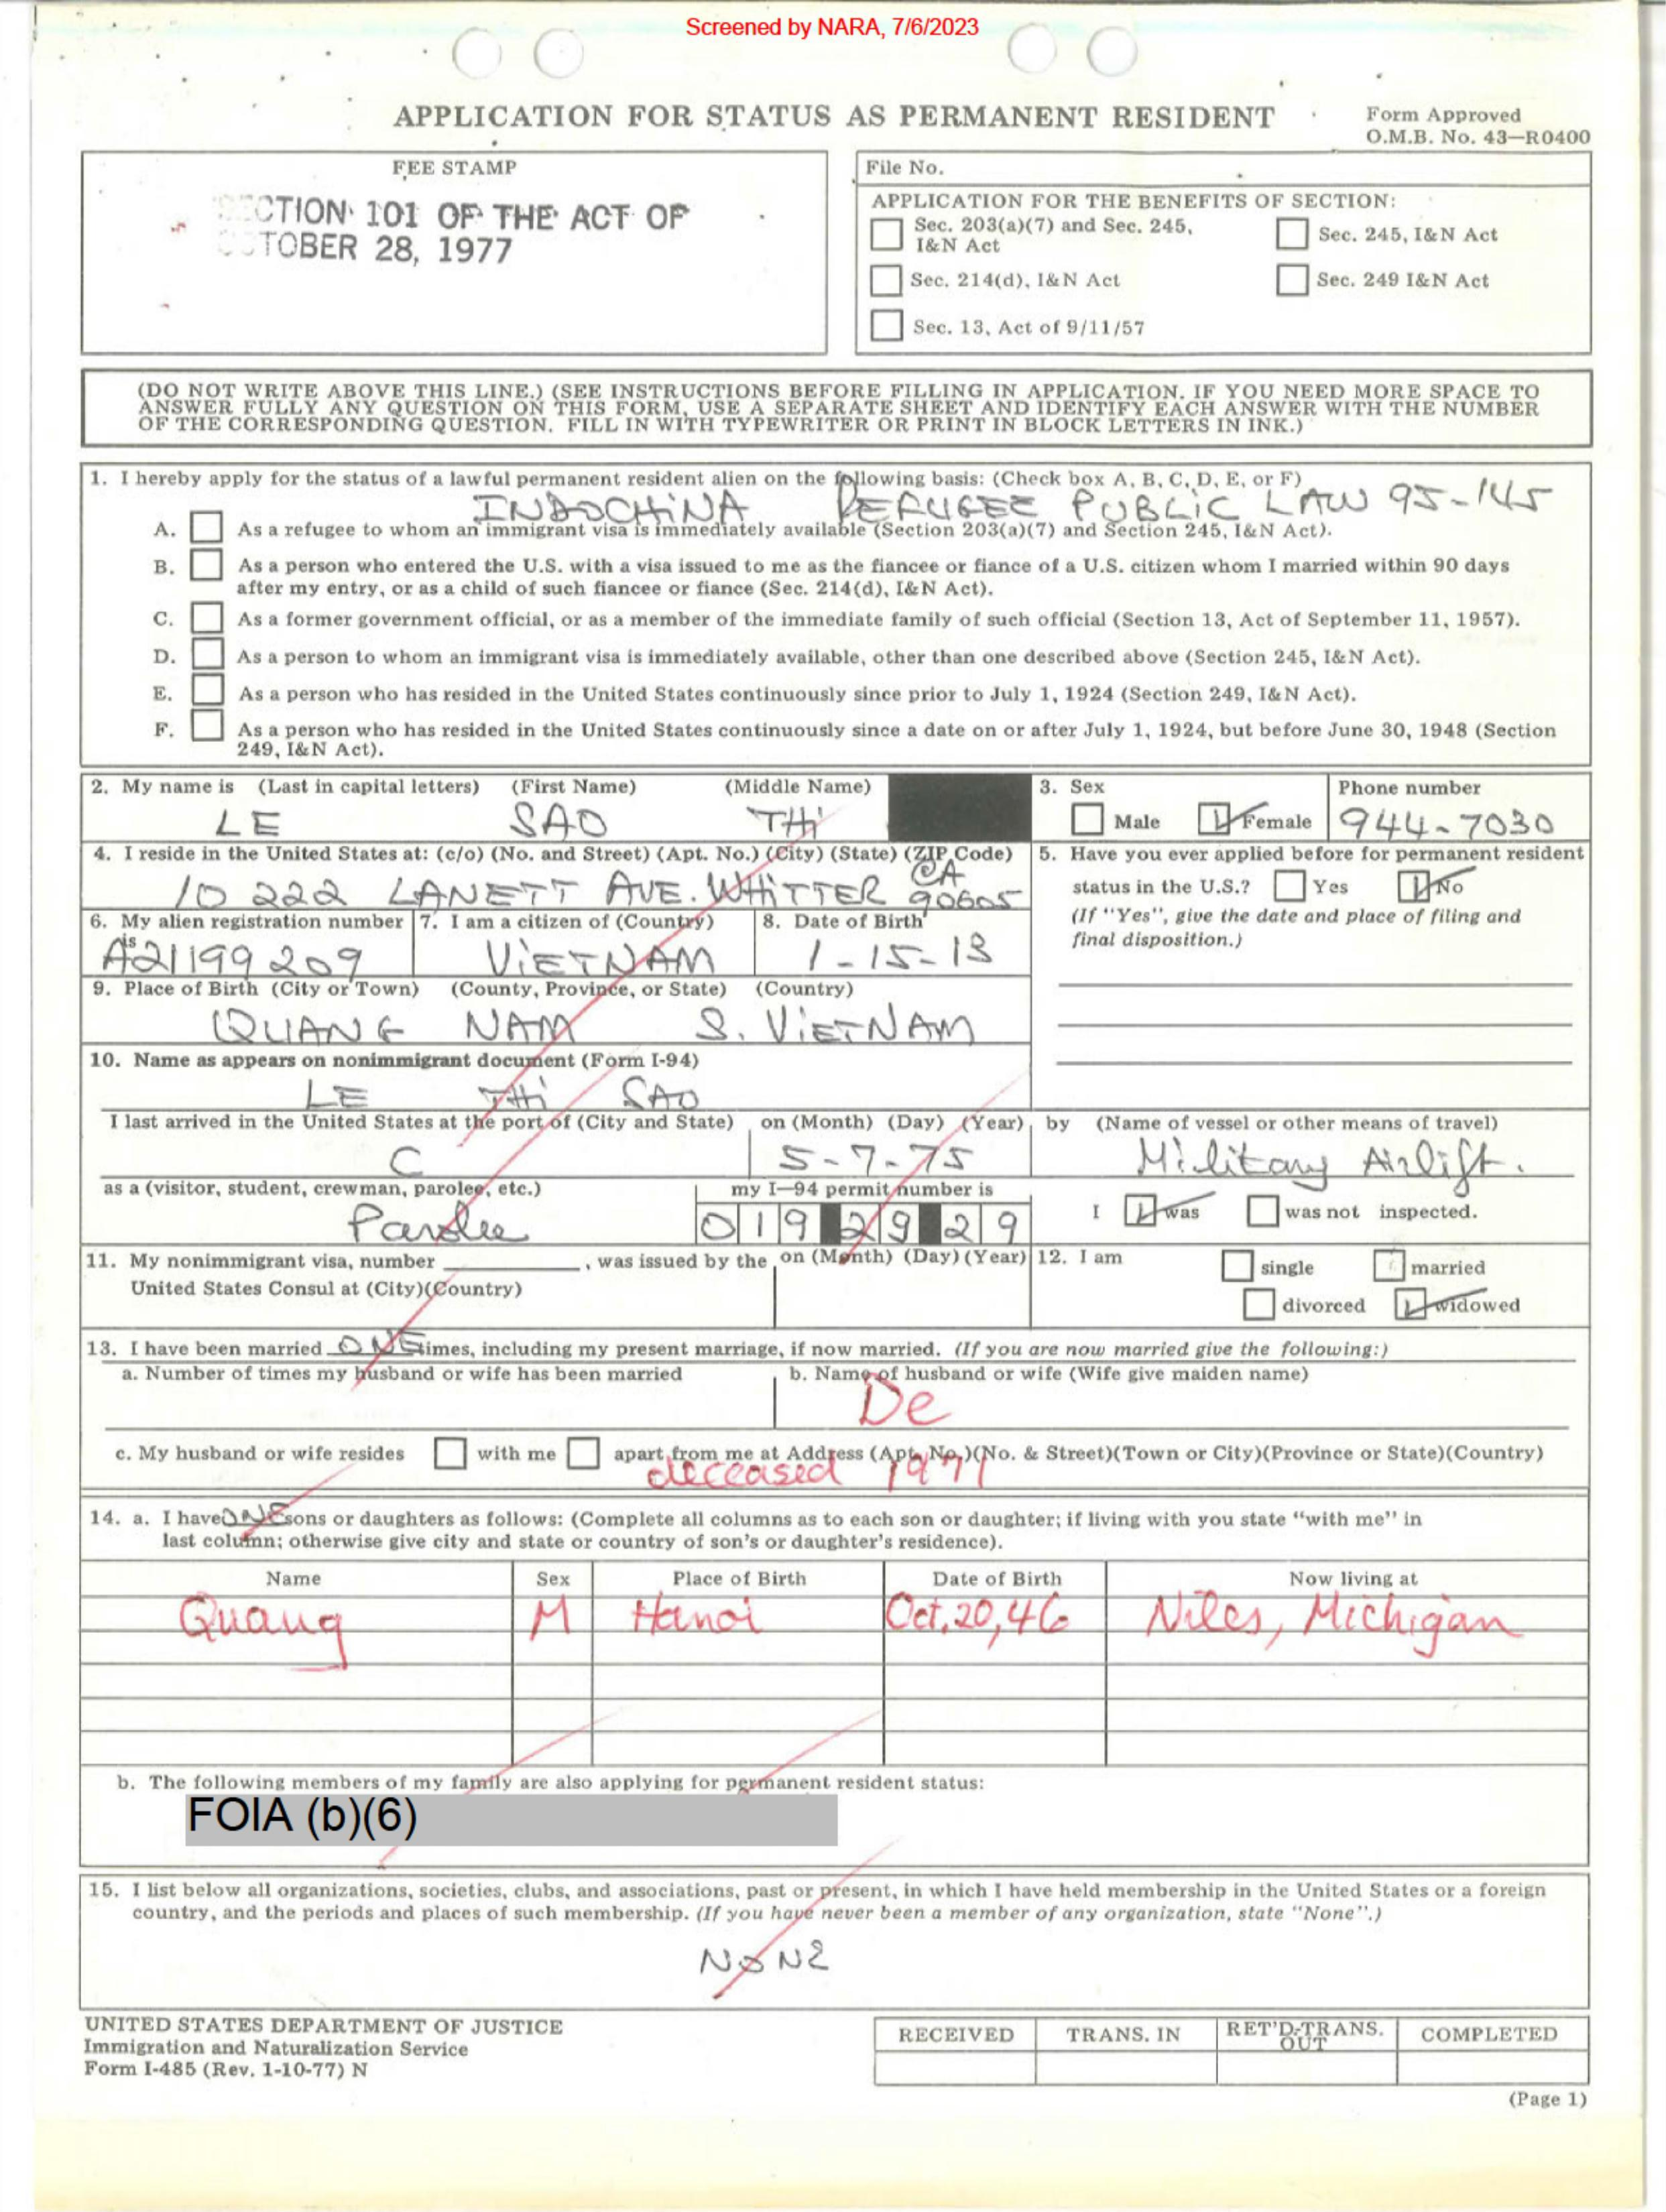 Screened by NARA, 7/6/2023
APPLICATION FOR STATUS AS PERMANENT RESIDENT
Form Approved
O.M.B. No. 43—R0400
FEE STAMP
CTION 101 OF THE ACT OF
TOBER 28, 1977
File No.
APPLICATION FOR THE BENEFITS OF SECTION:
Sec. 203(a)(7) and Sec. 245, I&N Act
Sec. 245, I&N Act
Sec. 214(d), I&N Act
Sec. 249 I&N Act
Sec. 13, Act of 9/11/57
(DO NOT WRITE ABOVE THIS LINE.) (SEE INSTRUCTIONS BEFORE FILLING IN APPLICATION. IF YOU NEED MORE SPACE TO
ANSWER FULLY ANY QUESTION ON THIS FORM, USE A SEPARATE SHEET AND IDENTIFY EACH ANSWER WITH THE NUMBER
OF THE CORRESPONDING QUESTION. FILL IN WITH TYPEWRITER OR PRINT IN BLOCK LETTERS IN INK.)
1. I hereby apply for the status of a lawful permanent resident alien on the following basis: (Check box A, B, C, D, E, or F)
INDOCHINA REFUGEE PUBLIC LAW 95-145
A. As a refugee to whom an immigrant visa is immediately available (Section 203(a)(7) and Section 245, I&N Act).
B. As a person who entered the U.S. with a visa issued to me as the fiancee or fiance of a U.S. citizen whom I married within 90 days
after my entry, or as a child of such fiancee or fiance (Sec. 214(d), I&N Act).
C. As a former government official, or as a member of the immediate family of such official (Section 13, Act of September 11, 1957).
D. As a person to whom an immigrant visa is immediately available, other than one described above (Section 245, I&N Act).
E. As a person who has resided in the United States continuously since prior to July 1, 1924 (Section 249, I&N Act).
F. As a person who has resided in the United States continuously since a date on or after July 1, 1924, but before June 30, 1948 (Section
249, I&N Act).
2. My name is (Last in capital letters) (First Name) (Middle Name)
LE SAO THi
3. Sex
Male Female
Phone number
944-7030
4. I reside in the United States at: (c/o) (No. and Street) (Apt. No.) (City) (State) (ZIP Code)
10 222 LANETT AVE. WHiTTER CA 90605
5. Have you ever applied before for permanent resident
status in the U.S.? Yes No
(If "Yes", give the date and place of filing and
final disposition.)
6. My alien registration number
is
A21199209
7. I am a citizen of (Country)
ViETNAM
8. Date of Birth
1-15-13
9. Place of Birth (City or Town) (County, Province, or State) (Country)
QUANG NAM S. ViETNAM
10. Name as appears on nonimmigrant document (Form I-94)
LE THi SAO
I last arrived in the United States at the port of (City and State)
C
on (Month) (Day) (Year)
5-7-75
by (Name of vessel or other means of travel)
Military Airlift.
as a (visitor, student, crewman, parolee, etc.)
Parolee
my I—94 permit number is
019 29 29
I was was not inspected.
11. My nonimmigrant visa, number , was issued by the
United States Consul at (City)(Country)
on (Month) (Day) (Year)
12. I am single married
divorced widowed
13. I have been married ONE times, including my present marriage, if now married. (If you are now married give the following:)
a. Number of times my husband or wife has been married
b. Name of husband or wife (Wife give maiden name)
De
c. My husband or wife resides with me apart from me at Address (Apt. No.)(No. & Street)(Town or City)(Province or State)(Country)
deceased 1971
14. a. I have ONE sons or daughters as follows: (Complete all columns as to each son or daughter; if living with you state "with me" in
last column; otherwise give city and state or country of son's or daughter's residence).
Name Sex Place of Birth Date of Birth Now living at
Quang M Hanoi Oct, 20, 46 Niles, Michigan
b. The following members of my family are also applying for permanent resident status:
FOIA (b)(6)
15. I list below all organizations, societies, clubs, and associations, past or present, in which I have held membership in the United States or a foreign
country, and the periods and places of such membership. (If you have never been a member of any organization, state "None".)
NONE
UNITED STATES DEPARTMENT OF JUSTICE
Immigration and Naturalization Service
Form I-485 (Rev. 1-10-77) N
RECEIVED TRANS. IN RET'D-TRANS. OUT COMPLETED
(Page 1)